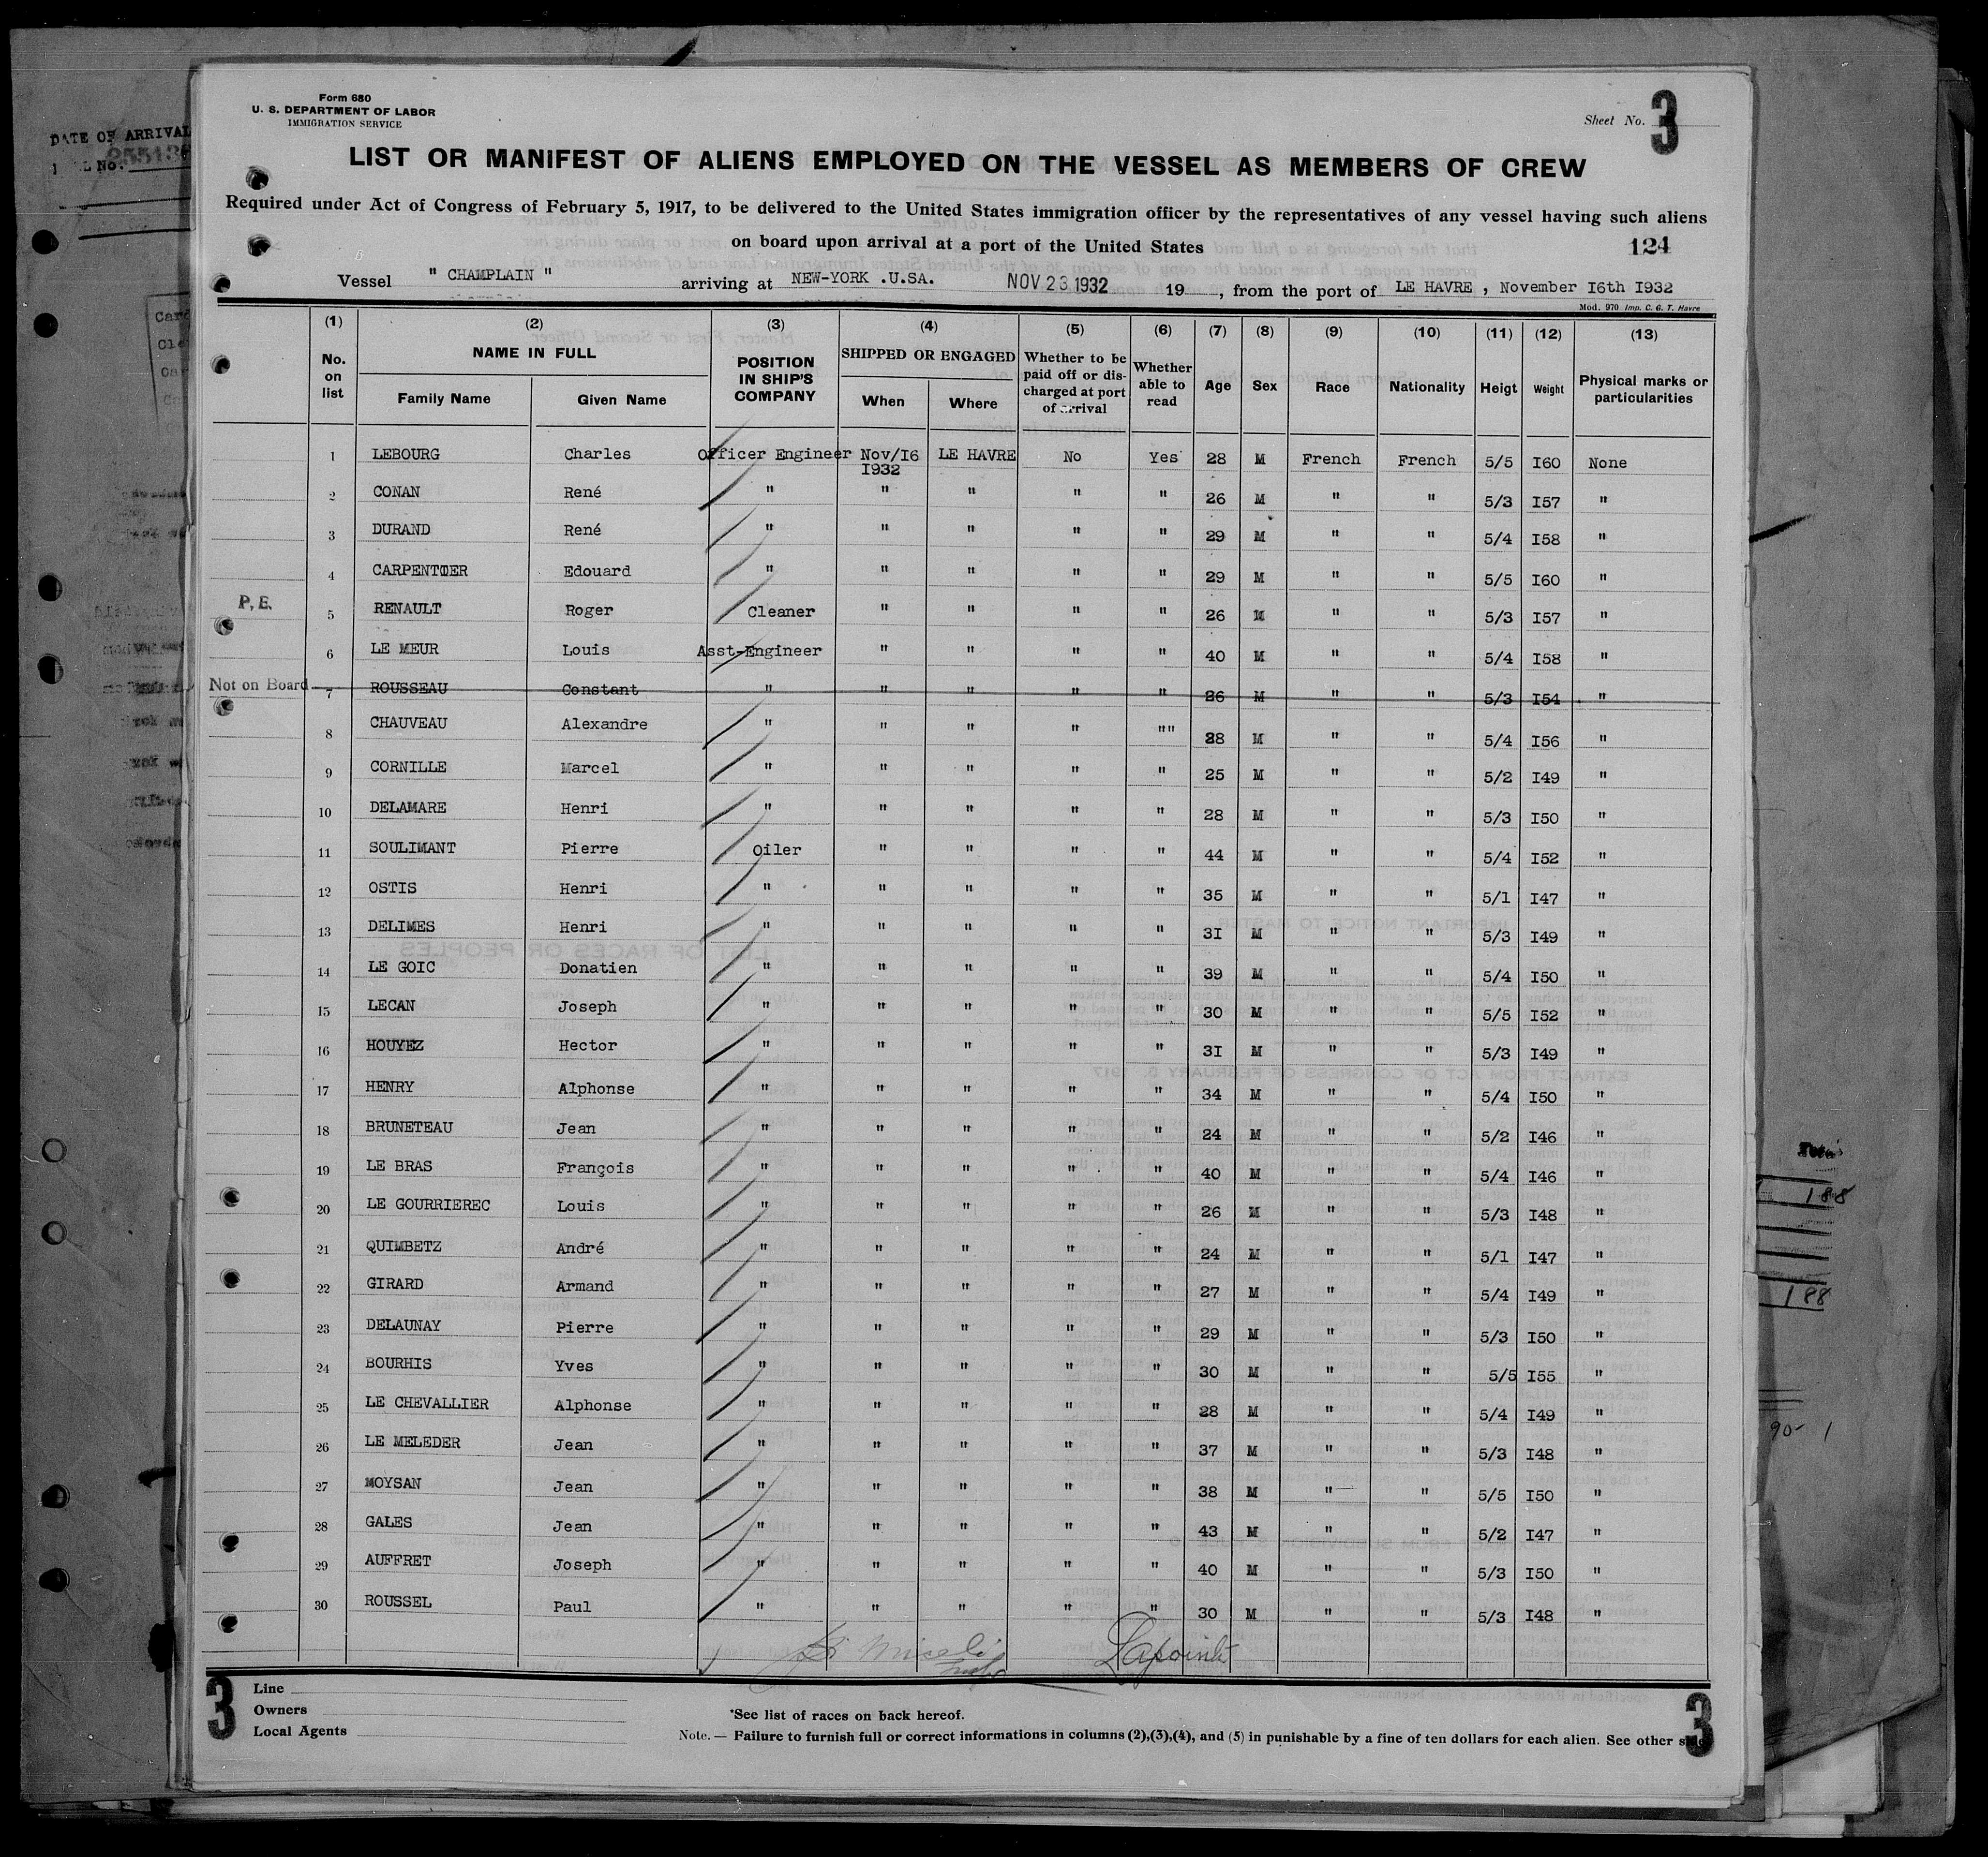 Form 680
U. S. DEPARTMENT OF LABOR
IMMIGRATION SERVICE
Sheet No. 3
DATE OF ARRIVAL
LIST OR MANIFEST OF ALIENS EMPLOYED ON THE VESSEL AS MEMBERS OF CREW
Required under Act of Congress of February 5, 1917, to be delivered to the United States immigration officer by the representatives of any vessel having such aliens
on board upon arrival at a port of the United States
124
Vessel " CHAMPLAIN " arriving at NEW-YORK .U.SA. NOV 23 1932 19 , from the port of LE HAVRE , November I6th I932
Mod. 970 Imp. C. G. T. Havre
(1) (2) (3) (4) (5) (6) (7) (8) (9) (10) (11) (12) (13)
No. on list NAME IN FULL Family Name Given Name POSITION IN SHIP'S COMPANY SHIPPED OR ENGAGED When Where Whether to be paid off or discharged at port of arrival Whether able to read Age Sex Race Nationality Heigt Weight Physical marks or particularities
1 LEBOURG Charles Officer Engineer Nov/I6 I932 LE HAVRE No Yes 28 M French French 5/5 I60 None
2 CONAN René " " " " " 26 M " " 5/3 I57 "
3 DURAND René " " " " " 29 M " " 5/4 I58 "
4 CARPENTIER Edouard " " " " " 29 M " " 5/5 I60 "
P. E. 5 RENAULT Roger Cleaner " " " " 26 M " " 5/3 I57 "
6 LE MEUR Louis Asst-Engineer " " " " 40 M " " 5/4 I58 "
Not on Board 7 ROUSSEAU Constant " " " " " 26 M " " 5/3 I54 "
8 CHAUVEAU Alexandre " " " " "" 28 M " " 5/4 I56 "
9 CORNILLE Marcel " " " " " 25 M " " 5/2 I49 "
10 DELAMARE Henri " " " " " 28 M " " 5/3 I50 "
11 SOULIMANT Pierre Oiler " " " " 44 M " " 5/4 I52 "
12 OSTIS Henri " " " " " 35 M " " 5/1 I47 "
13 DELIMES Henri " " " " " 3I M " " 5/3 I49 "
14 LE GOIC Donatien " " " " " 39 M " " 5/4 I50 "
15 LECAN Joseph " " " " " 30 M " " 5/5 I52 "
16 HOUYEZ Hector " " " " " 3I M " " 5/3 I49 "
17 HENRY Alphonse " " " " " 34 M " " 5/4 I50 "
18 BRUNETEAU Jean " " " " " 24 M " " 5/2 I46 "
19 LE BRAS François " " " " " 40 M " " 5/4 I46 "
20 LE GOURRIEREC Louis " " " " " 26 M " " 5/3 I48 "
21 QUIMBETZ André " " " " " 24 M " " 5/1 I47 "
22 GIRARD Armand " " " " " 27 M " " 5/4 I49 "
23 DELAUNAY Pierre " " " " " 29 M " " 5/3 I50 "
24 BOURHIS Yves " " " " " 30 M " " 5/5 I55 "
25 LE CHEVALLIER Alphonse " " " " " 28 M " " 5/4 I49 "
26 LE MELEDER Jean " " " " " 37 M " " 5/3 I48 "
27 MOYSAN Jean " " " " " 38 M " " 5/5 I50 "
28 GALES Jean " " " " " 43 M " " 5/2 I47 "
29 AUFFRET Joseph " " " " " 40 M " " 5/3 I50 "
30 ROUSSEL Paul " " " " " 30 M " " 5/3 I48 "
Lapointe
188
188
90- 1
3 Line
Owners
Local Agents
*See list of races on back hereof.
Note. — Failure to furnish full or correct informations in columns (2),(3),(4), and (5) in punishable by a fine of ten dollars for each alien. See other
3